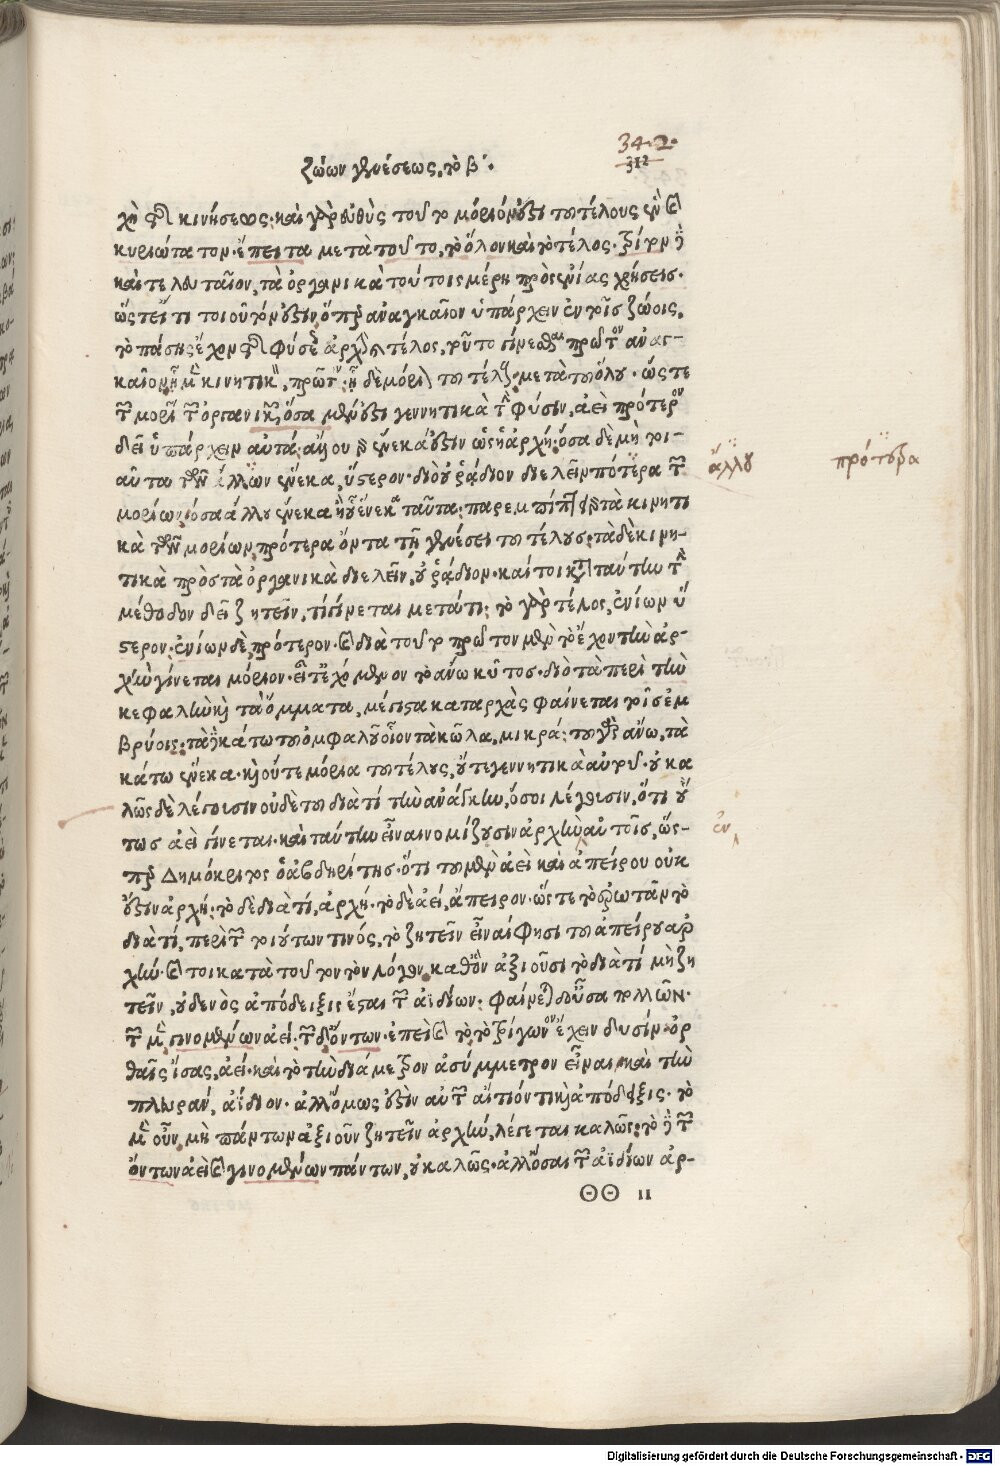 34-2.
ζώων γενέσεως, τὸ β΄.
312
χὴ τῆς κινήσεως· καὶ γὰρ εὐθὺς τοῦτο μόριόν ἐστι τοῦ τέλους ἓν καὶ
κυριώτατον. ἔπειτα μετὰ τοῦτο, τὸ ὅλον καὶ τὸ τέλος. τρίτον δὲ
καὶ τελευταῖον, τὰ ὀργανικὰ τούτοις μέρη πρὸς ἐνίας χρήσεις.
ὥς τ' εἴ τι τοιοῦτόν ἐστιν, ὅπερ ἀναγκαῖον ὑπάρχειν ἐν τοῖς ζώοις,
τὸ πάσης ἔχον τῆς φύσεως ἀρχὴν καὶ τέλος, τοῦτο γίνεσθαι πρῶτον ἀναγ-
καῖον, ᾗ μὲν κινητικὸν, πρῶτον. ᾗ δὲ μόριον τοῦ τέλους, μετὰ τοῦ ὅλου. ὥς τε
τῶν μορίων τῶν ὀργανικῶν, ὅσα μέν ἐστι γεννητικὰ τὴν φύσιν, ἀεὶ πρότερον
δεῖ ὑπάρχειν αὐτά· ἄλλου γὰρ ἕνεκά ἐστιν ὡς ἡ ἀρχή· ὅσα δὲ μὴ τοι-
αῦτα τῶν ἄλλων ἕνεκα, ὕστερον. διὸ οὐ ῥᾴδιον διελεῖν πότερα τῶν
ἄλλου πρότερα
μορίων, ὅσα ἄλλου ἕνεκα ἢ οὗ ἕνεκα ταῦτα· παρεμπίπτει γὰρ τὰ κινητι
κὰ τῶν μορίων, πρότερα ὄντα τῇ γενέσει τοῦ τέλους· τὰ δὲ κινη-
τικὰ πρὸς τὰ ὀργανικὰ διελεῖν, οὐ ῥᾴδιον. καίτοι κατὰ ταύτην τὴν
μέθοδον δεῖ ζητεῖν, τί γίνεται μετά τι· τὸ γὰρ τέλος, ἐνίων ὕ
στερον. ἐνίων δὲ, πρότερον. καὶ διὰ τοῦτο πρῶτον μὲν τὸ ἔχον τὴν ἀρ-
χὴν γίνεται μόριον. εἶτ' ἐχόμενον τὸ ἄνω κύτος. διὸ τὰ περὶ τὴν
κεφαλὴν καὶ τὰ ὄμματα, μέγιστα κατ' ἀρχὰς φαίνεται τοῖς ἐμ
βρύοις· τὰ δὲ κάτω τοῦ ὀμφαλοῦ οἷον τὰ κῶλα, μικρά· τοῦ γὰρ ἄνω, τὰ
κάτω ἕνεκα. καὶ οὔτε μόρια τοῦ τέλους, οὔτε γεννητικὰ αὐτοῦ. οὐ κα
λῶς δὲ λέγουσιν οὐδὲ τοῦ διὰ τί τὴν ἀνάγκην, ὅσοι λέγουσιν, ὅτι οὕ
τως ἀεὶ γίνεται. καὶ ταύτην εἶναι νομίζουσιν ἀρχὴν αὐτοῖς, ὥς-
ἐν
περ Δημόκριτος ὁ ἀβδηρίτης. ὅτι τοῦ μὲν ἀεὶ καὶ ἀπείρου οὐκ
ἔστιν ἀρχή· τὸ δὲ διὰ τί, ἀρχή. τὸ δὲ ἀεί, ἄπειρον. ὥς τε τὸ ἐρωτᾶν τὸ
διὰ τί, περὶ τῶν τοιούτων τινός, τὸ ζητεῖν εἶναί φησι τοῦ ἀπείρου ἀρ
χήν. καί τοι κατὰ τοῦτον τὸν λόγον, καθ' ὃν ἀξιοῦσι τὸ διὰ τί μὴ ζη
τεῖν, οὐδενὸς ἀπόδειξις ἔσται τῶν ἀϊδίων· φαίνεται δ' οὖσα πολλῶν.
τῶν μὲν γινομένων ἀεί. τῶν δ' ὄντων. ἐπεὶ καὶ τὸ τὸ τρίγωνον ἔχειν δυσὶν ὀρ
θαῖς ἴσας, ἀεί. καὶ τὸ τὴν διάμετρον ἀσύμμετρον εἶναι καὶ τὴν
πλευρὰν, ἀΐδιον. ἀλλ' ὅμως ἐστὶν αὐτῶν αἴτιόν τι καὶ ἀπόδειξις. τὸ
μὲν οὖν, μὴ πάντων ἀξιοῦν ζητεῖν ἀρχὴν, λέγεται καλῶς· τὸ δὲ τῶν
ὄντων ἀεὶ καὶ γινομένων πάντων, οὐ καλῶς. ἀλλ' ὅσαι τῶν ἀϊδίων ἀρ-
ΘΘ ιι
Digitalisierung gefördert durch die Deutsche Forschungsgemeinschaft - DFG